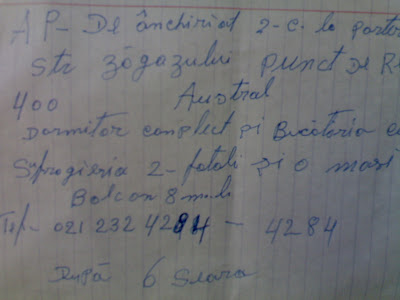 AP- De ânchiriat 2-c. la parter
Str zăgazului punct de R
400 Austral
Dormitor complect și Bucătaria
Sufrogieria 2- fotoli și o masi
Balcon 8 m.
Tef- 021 232 42 - 4284
După 6 Seara